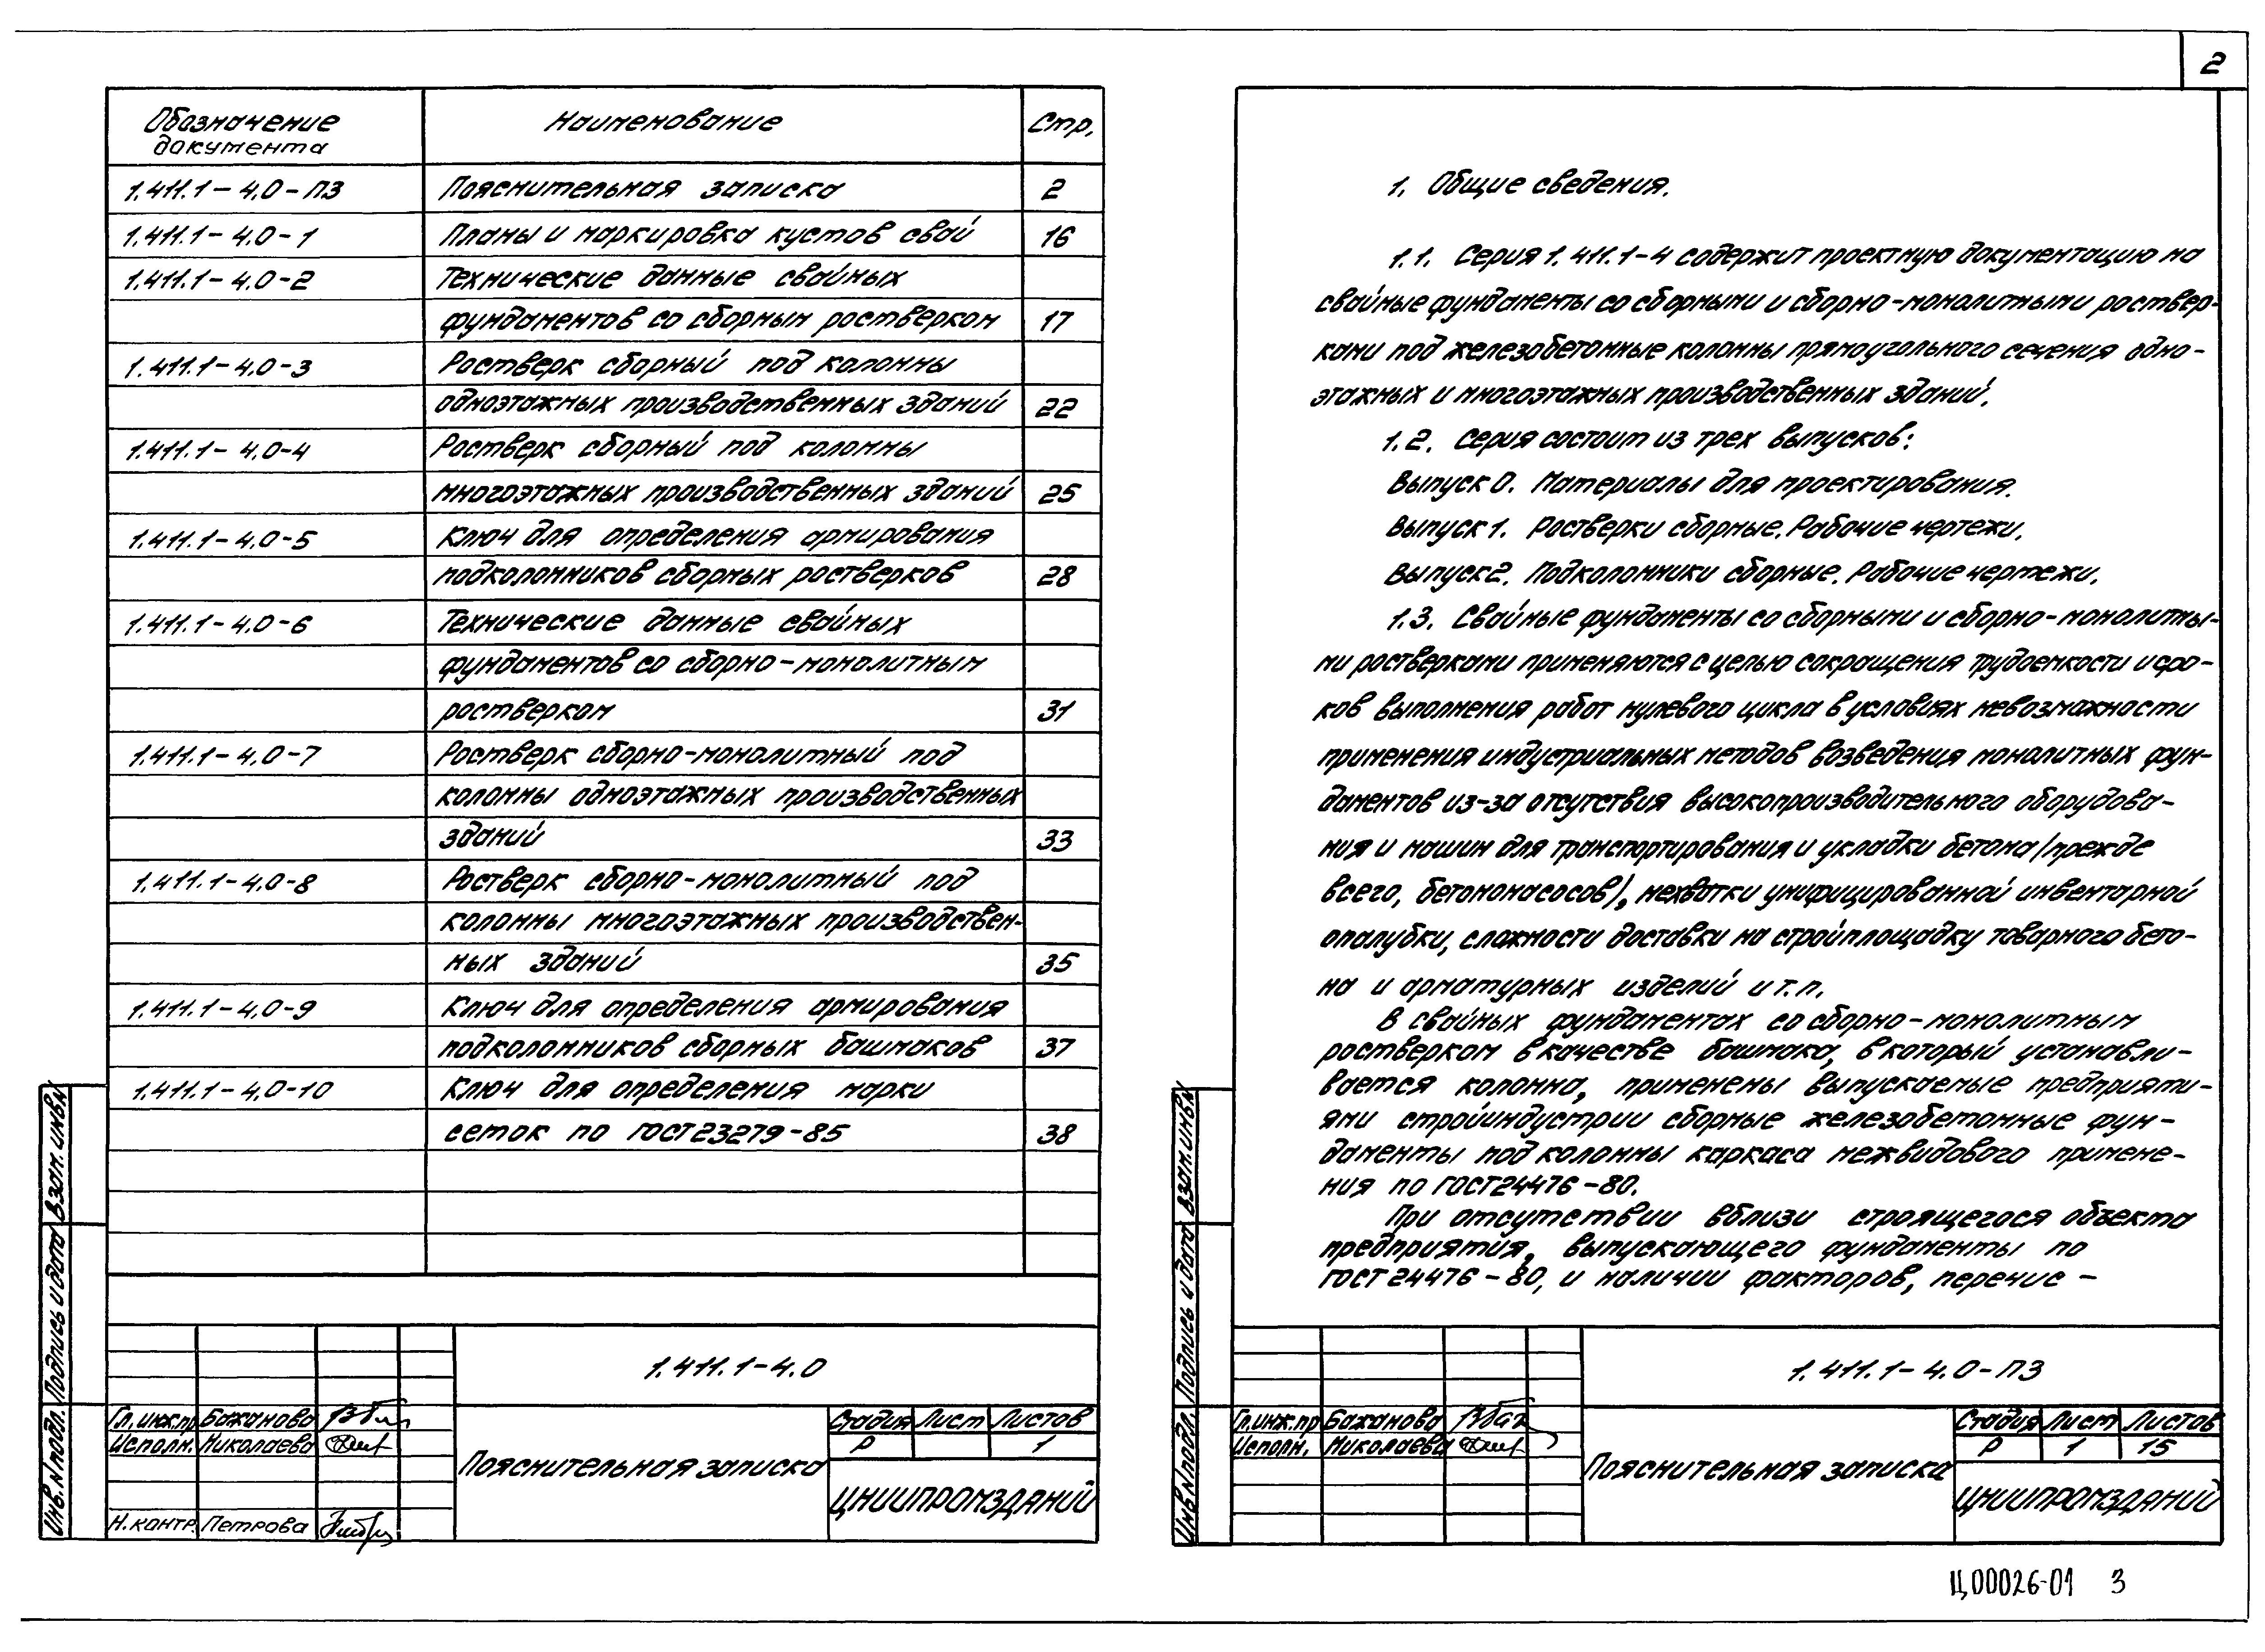 2
Обозначение документа Наименование Стр.
1.411.1-4.0-ПЗ Пояснительная записка 2
1.411.1-4.0-1 Планы и маркировка кустов свай 16
1.411.1-4.0-2 Технические данные свайных
фундаментов со сборным ростверком 17
1.411.1-4.0-3 Ростверк сборный под колонны
одноэтажных производственных зданий 22
1.411.1-4.0-4 Ростверк сборный под колонны
многоэтажных производственных зданий 25
1.411.1-4.0-5 Ключ для определения армирования
подколонников сборных ростверков 28
1.411.1-4.0-6 Технические данные свайных
фундаментов со сборно-монолитным
ростверком 31
1.411.1-4.0-7 Ростверк сборно-монолитный под
колонны одноэтажных производственных
зданий 33
1.411.1-4.0-8 Ростверк сборно-монолитный под
колонны многоэтажных производствен-
ных зданий 35
1.411.1-4.0-9 Ключ для определения армирования
подколонников сборных башмаков 37
1.411.1-4.0-10 Ключ для определения марки
сеток по ГОСТ 23279-85 38
Взам. инв. N
Подпись и дата
Инв. N подл.
1.411.1-4.0
Гл. инж. пр Бажанова
Исполн. Николаева
Н. контр. Петрова
Пояснительная записка
Стадия Лист Листов
Р 1
ЦНИИПРОМЗДАНИЙ
1. Общие сведения.
1.1. Серия 1.411.1-4 содержит проектную документацию на
свайные фундаменты со сборными и сборно-монолитными роствер-
ками под железобетонные колонны прямоугольного сечения одно-
этажных и многоэтажных производственных зданий.
1.2. Серия состоит из трех выпусков:
Выпуск 0. Материалы для проектирования.
Выпуск 1. Ростверки сборные. Рабочие чертежи.
Выпуск 2. Подколонники сборные. Рабочие чертежи.
1.3. Свайные фундаменты со сборными и сборно-монолитны-
ми ростверками применяются с целью сокращения трудоемкости и сро-
ков выполнения работ нулевого цикла в условиях невозможности
применения индустриальных методов возведения монолитных фун-
даментов из-за отсутствия высокопроизводительного оборудова-
ния и машин для транспортирования и укладки бетона (прежде
всего, бетононасосов), нехватки унифицированной инвентарной
опалубки, сложности доставки на стройплощадку товарного бето-
на и арматурных изделий и т.п.
В свайных фундаментах со сборно-монолитным
ростверком в качестве башмака, в который устанавли-
вается колонна, применены выпускаемые предприяти-
ями стройиндустрии сборные железобетонные фун-
даменты под колонны каркаса межвидового примене-
ния по ГОСТ 24476-80.
При отсутствии вблизи строящегося объекта
предприятия, выпускающего фундаменты по
ГОСТ 24476-80, и наличии факторов, перечис-
Взам. инв. N
Подпись и дата
Инв. N подл.
1.411.1-4.0-ПЗ
Гл. инж. пр Бажанова
Исполн. Николаева
Пояснительная записка
Стадия Лист Листов
Р 1 15
ЦНИИПРОМЗДАНИЙ
Ц00026-01 3